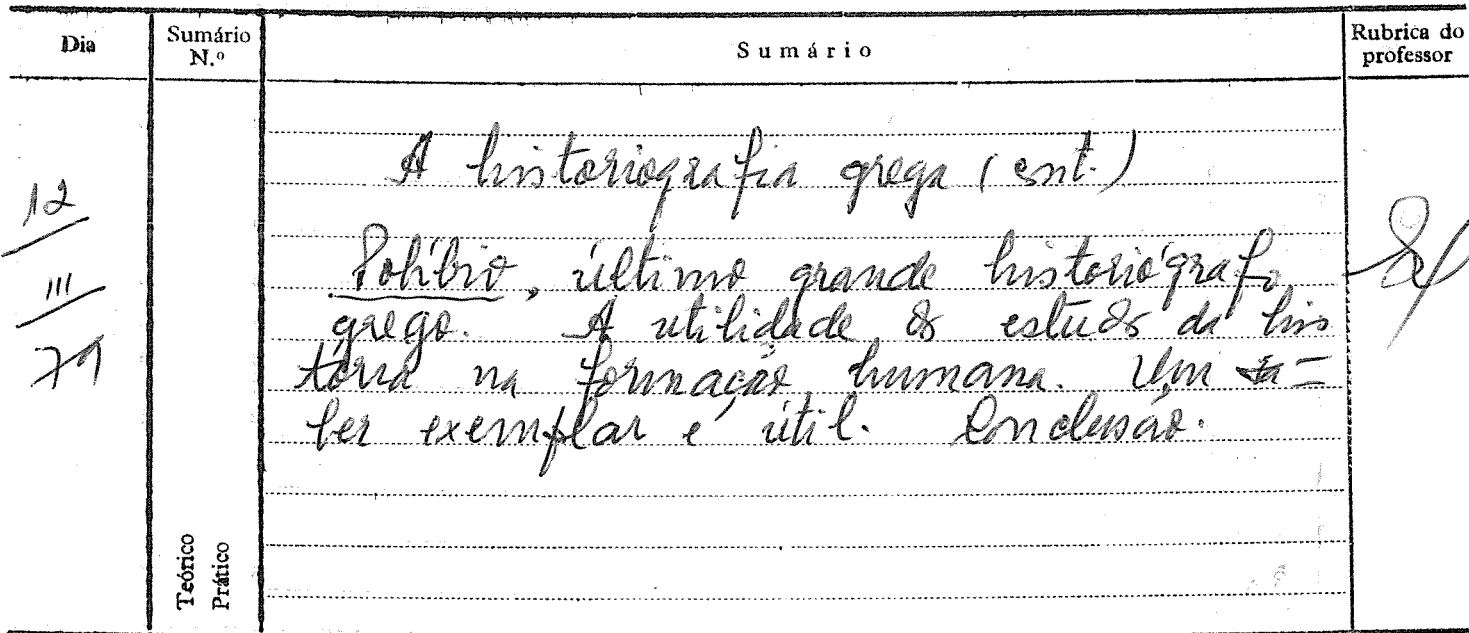 Dia
Sumário
N.º
Sumário
Rubrica do
professor
12
III
79
A historiografia grega (cont.)
Políbio, último grande historiógrafo
grego. A utilidade dos estudos da his
tória na formação humana. Um sa=
ber exemplar e útil. Conclusão.
Teórico
Prático